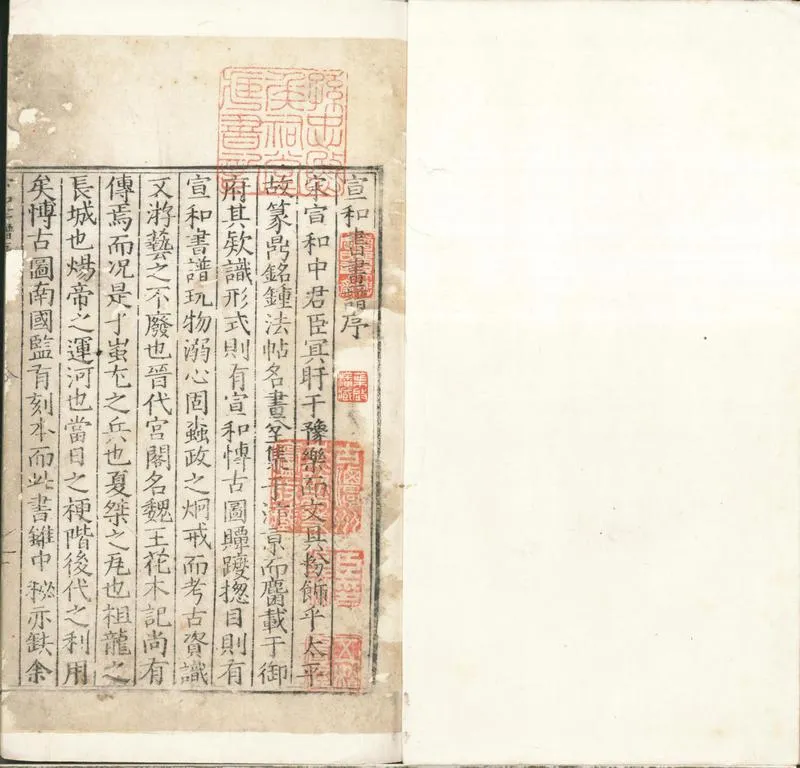 孫忠愍侯祠堂藏書記
宣和書畫譜序
宋宣和中君臣冥盱于豫樂而文具粉飾乎太平
故篆鼎銘鍾法帖名畫全集于京而麕載于御
府其欵識形式則有宣和愽古圖贉躞揔目則有
宣和書譜玩物溺心固蠹政之炯戒而考古資識
又游藝之不廢也晉代宮閣名魏王花木記尚有
傳焉而况是乎蚩尤之兵也夏桀之瓦也祖龍之
長城也煬帝之運河也當日之梗階後代之利用
矣愽古圖南國監有刻本而此書雖中秘亦鈌余